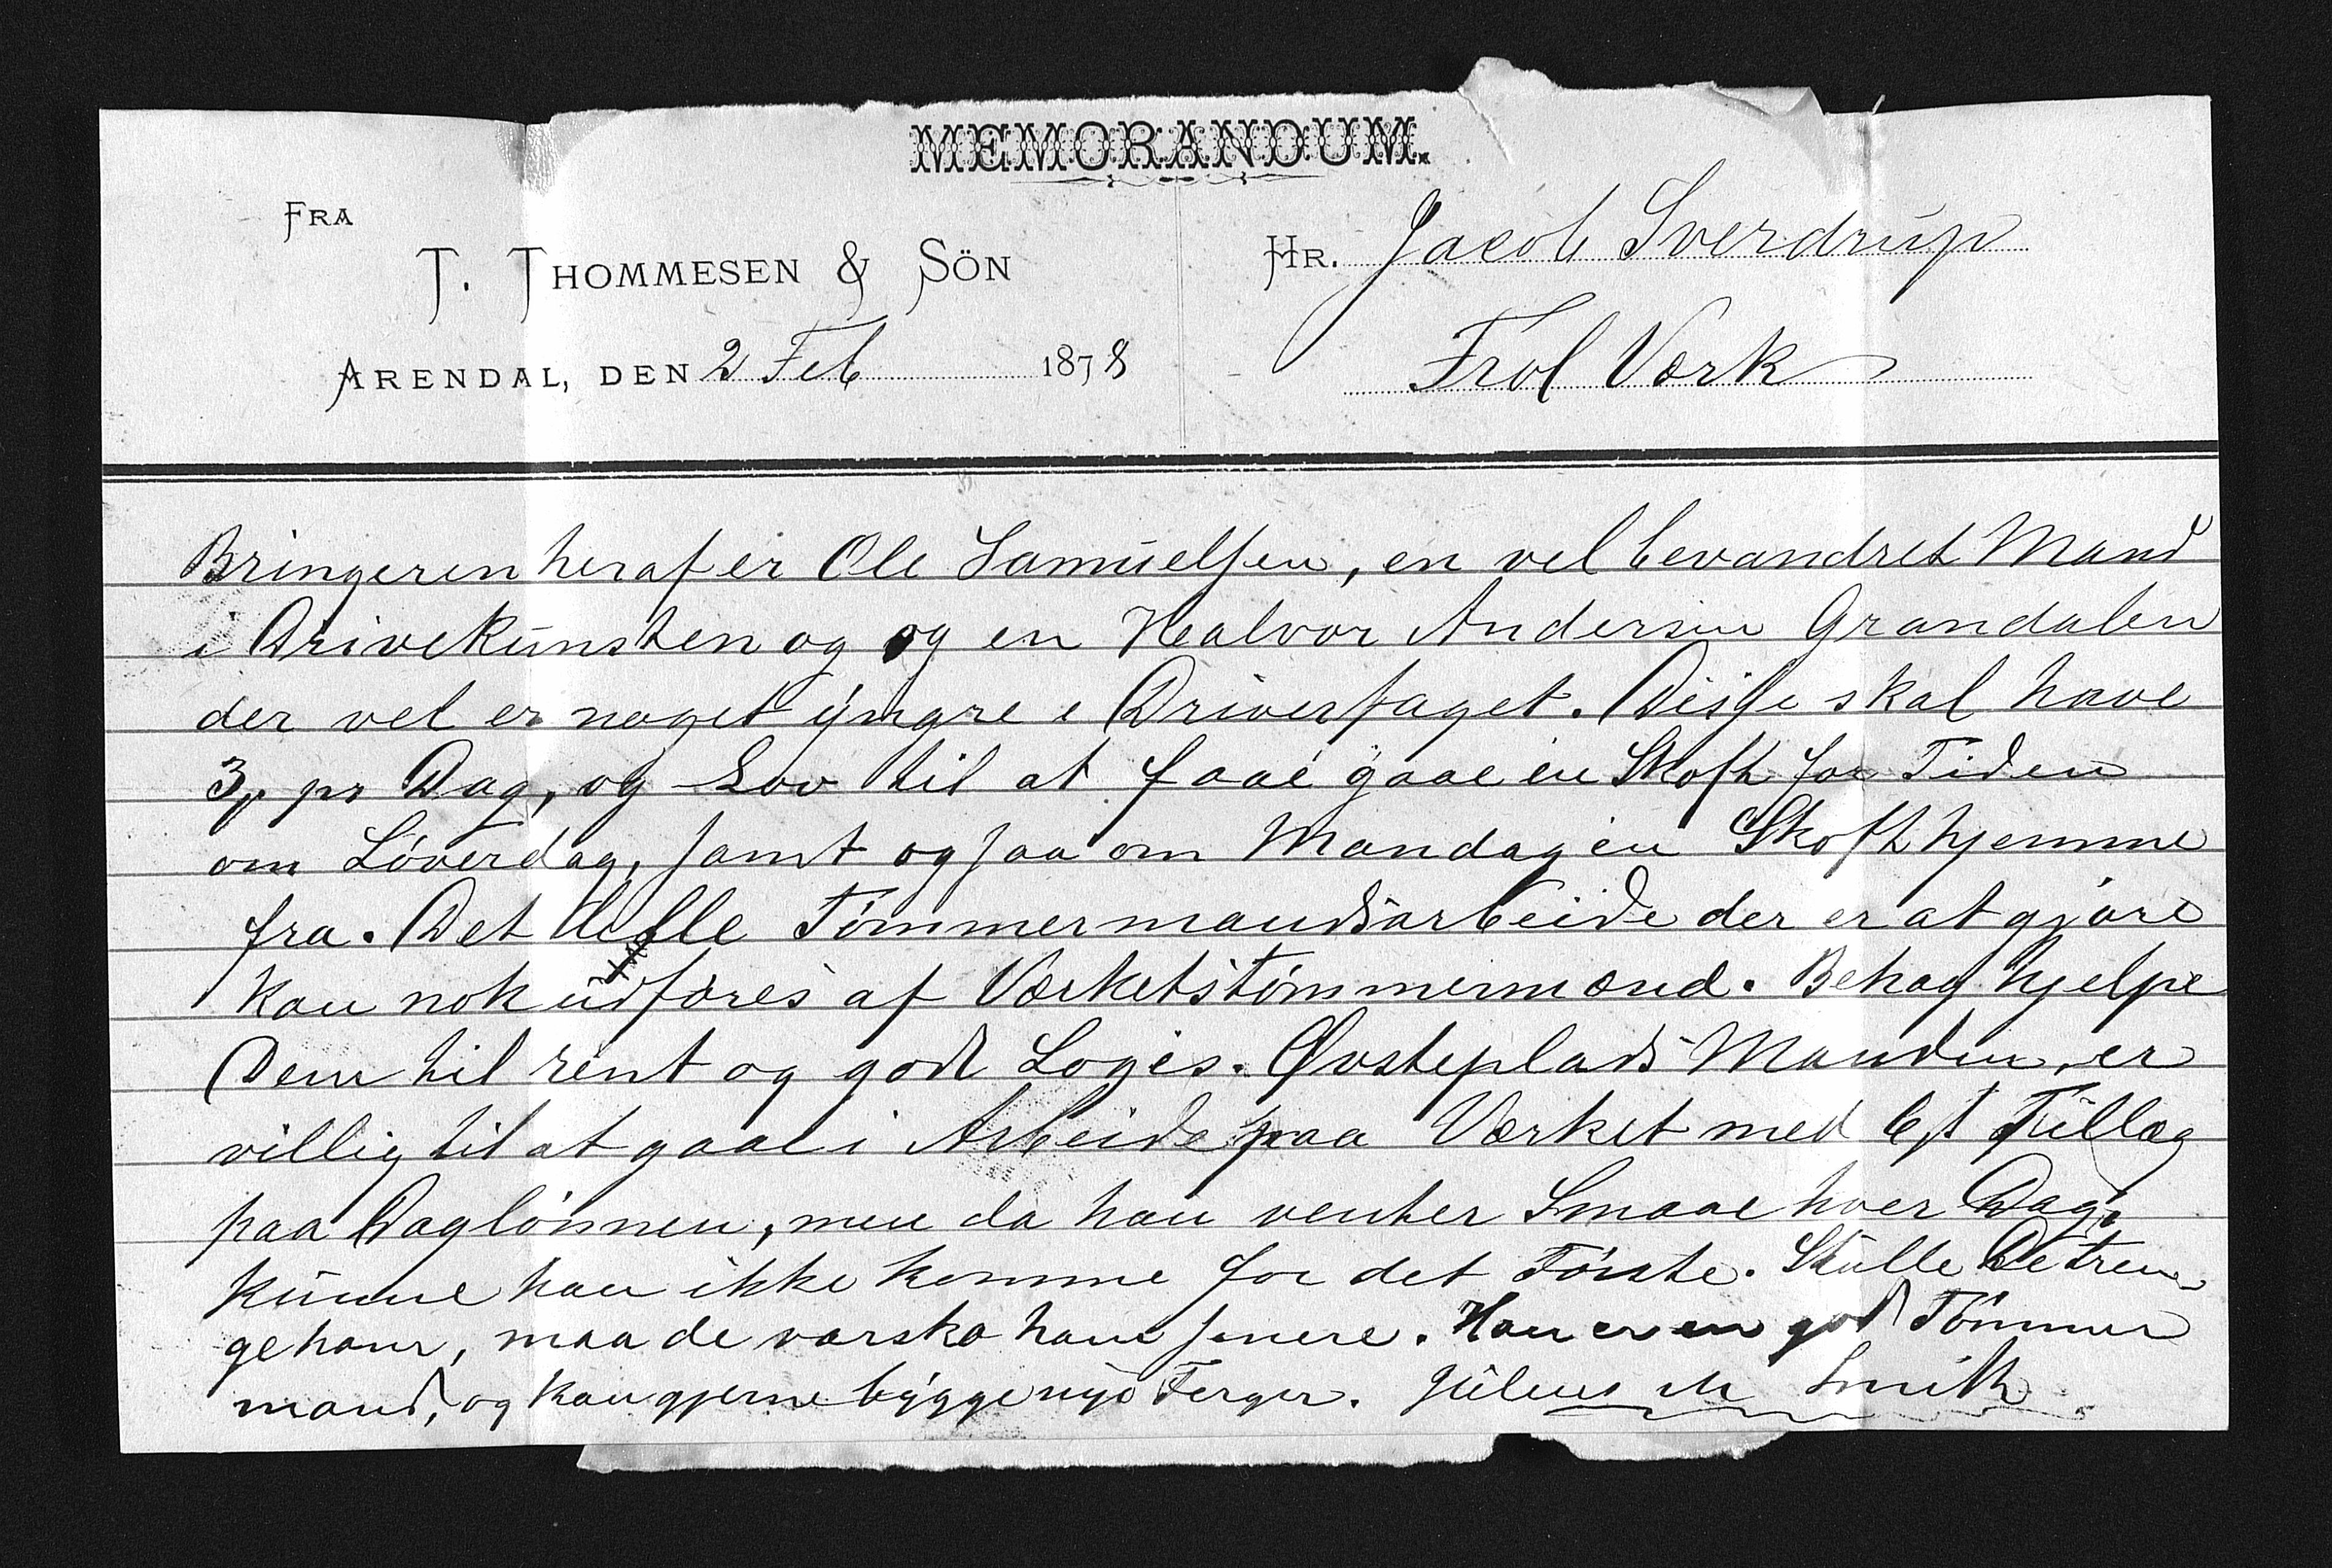 MEMORANDUM.
FRA
T. THOMMESEN & SÖN
ARENDAL, DEN 2 Feb 1878
HR. Jacob Sverdrup
Frol Værk
Bringeren heraf er Ole Samuelsen, en vel bevandret Mand
i Drivekunsten og og en Halvor Andersen Grandalen
der vel er noget yngre i Driverfaget. Disse skal have
3 pr Dag, og Lov til at faae gaae en Skoft for Tiden
om Löverdag, samt ogsaa om Mandag en Skoft hjemme
fra. Det Tömmermandsarbeide der er at gjöre
kan nok udföres af Værkets tömmermænd. Behag hjelpe
Dem til rent og godt Logis. Øvsteplads Manden er
villig til at gaae i Arbeide paa Værket med Tillæg
paa Daglönnen, men da han venter Smaae hver Dag,
kunne han ikke komme for det Förste. Skulle De tren-
ge ham, maa de varsko ham senere. Han er en god Tömmer
mand, og kan gjerne bygge nye Ferger. Julius M Smith